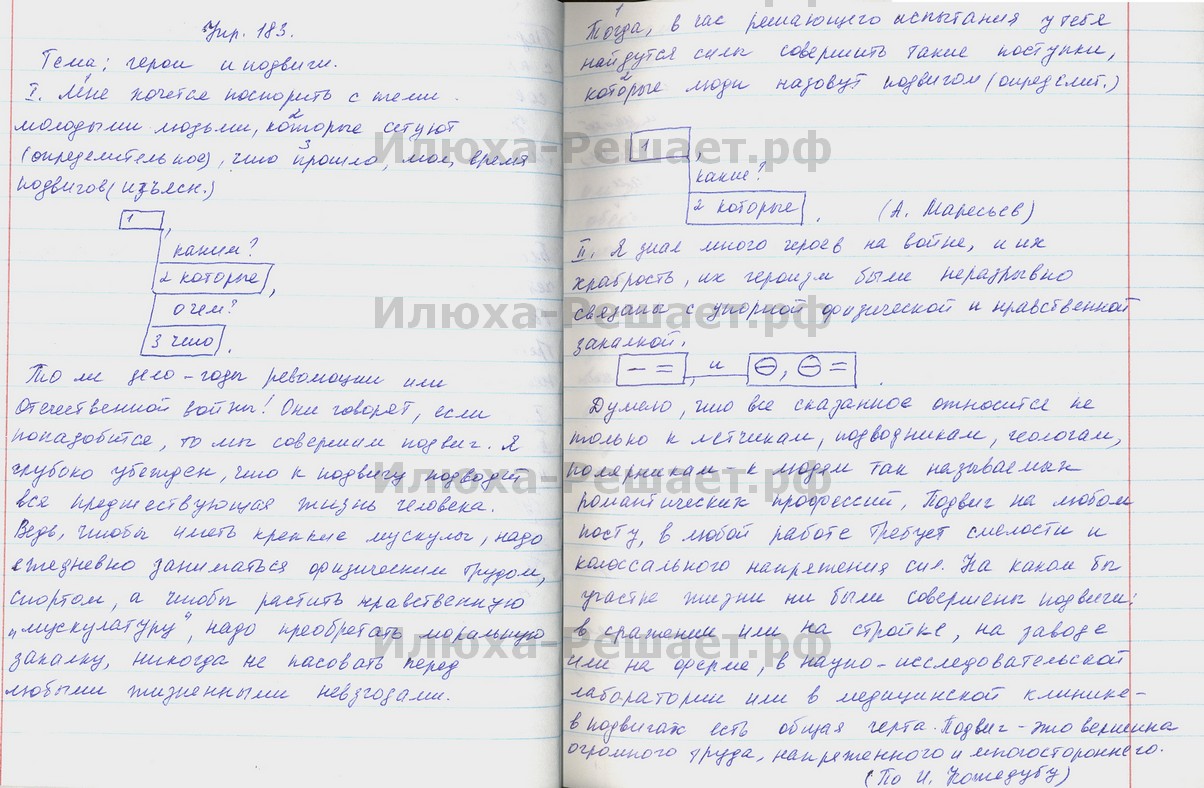 Упр. 183.
Тема: герои и подвиги.
I. Мне хочется поспорить с теми
молодыми людьми, которые сетуют
(определительное), что прошло, мол, время
подвигов (изъясн.)
1
каким?
2 которые
о чем?
3 что
То ли дело - годы революции или
Отечественной войны! Они говорят, если
понадобится, то мы совершим подвиг. Я
глубоко убежден, что к подвигу подводит
вся предшествующая жизнь человека.
Ведь, чтобы иметь крепкие мускулы, надо
ежедневно заниматься физическим трудом,
спортом, а чтобы растить нравственную
„мускулатуру", надо преобретать моральную
закалку, никогда не пасовать перед
любыми жизненными невзгодами.
Тогда, в час решающего испытания у тебя
найдутся силы совершить такие поступки,
которые люди назовут подвигом (определит.)
1
какие?
2 которые
(А. Маресьев)
II. Я знал много героев на войне, и их
храбрость, их героизм были неразрывно
связаны с упорной физической и нравственной
закалкой.
и
Думаю, что все сказанное относится не
только к летчикам, подводникам, геологам,
полярникам - к людям так называемых
романтических профессий. Подвиг на любом
посту, в любой работе требует смелости и
колоссального напряжения сил. На каком бы
участке жизни ни были совершены подвиги:
в сражении или на стройке, на заводе
или на ферме, в научно-исследовательской
лаборатории или в медицинской клинике -
в подвигах есть общая черта. Подвиг - это вершина
огромного труда, напряженного и многостороннего.
(По И. Кожедубу)
Илюха-Решает.рф
Илюха-Решает.рф
Илюха-Решает.рф
Илюха-Решает.рф